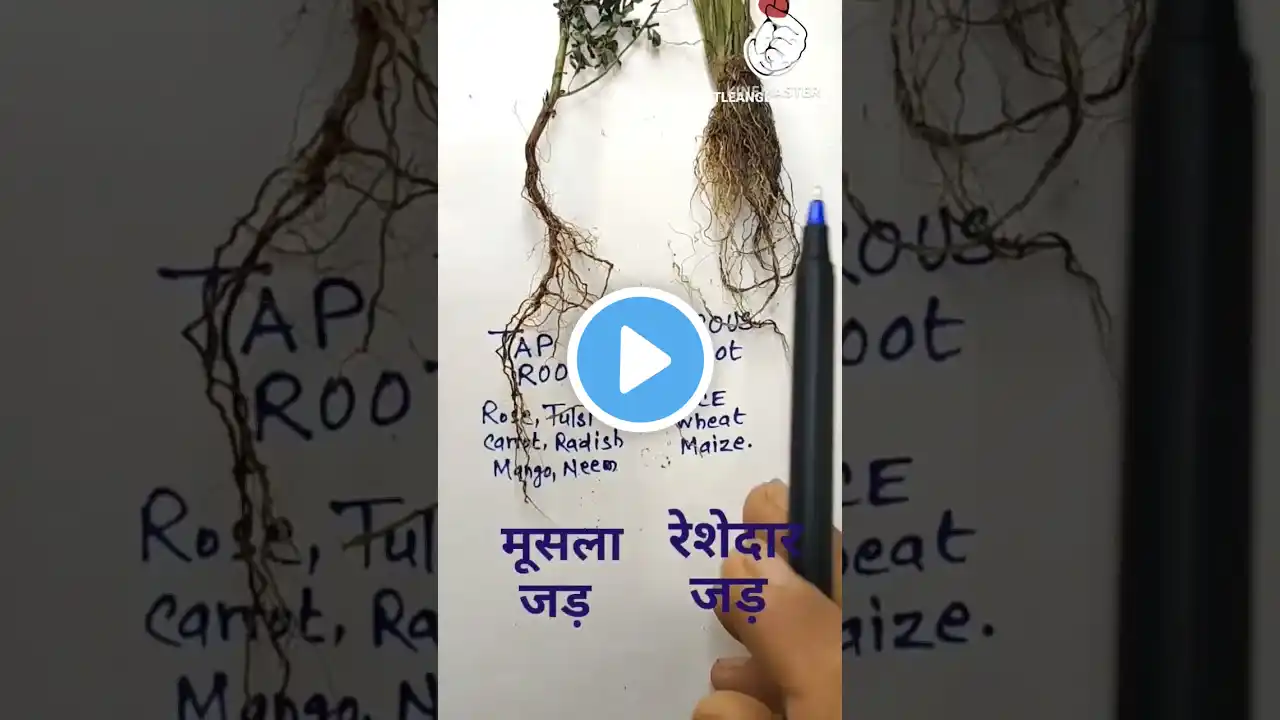 KINEMASTER
TLEANGL
TAP
ROO
Rose, Tulsi
Carrot, Radish
Mango, Neem
ROUS
oot
CE
Wheat
Maize.
मूसला
जड़
रेशेदार
जड़